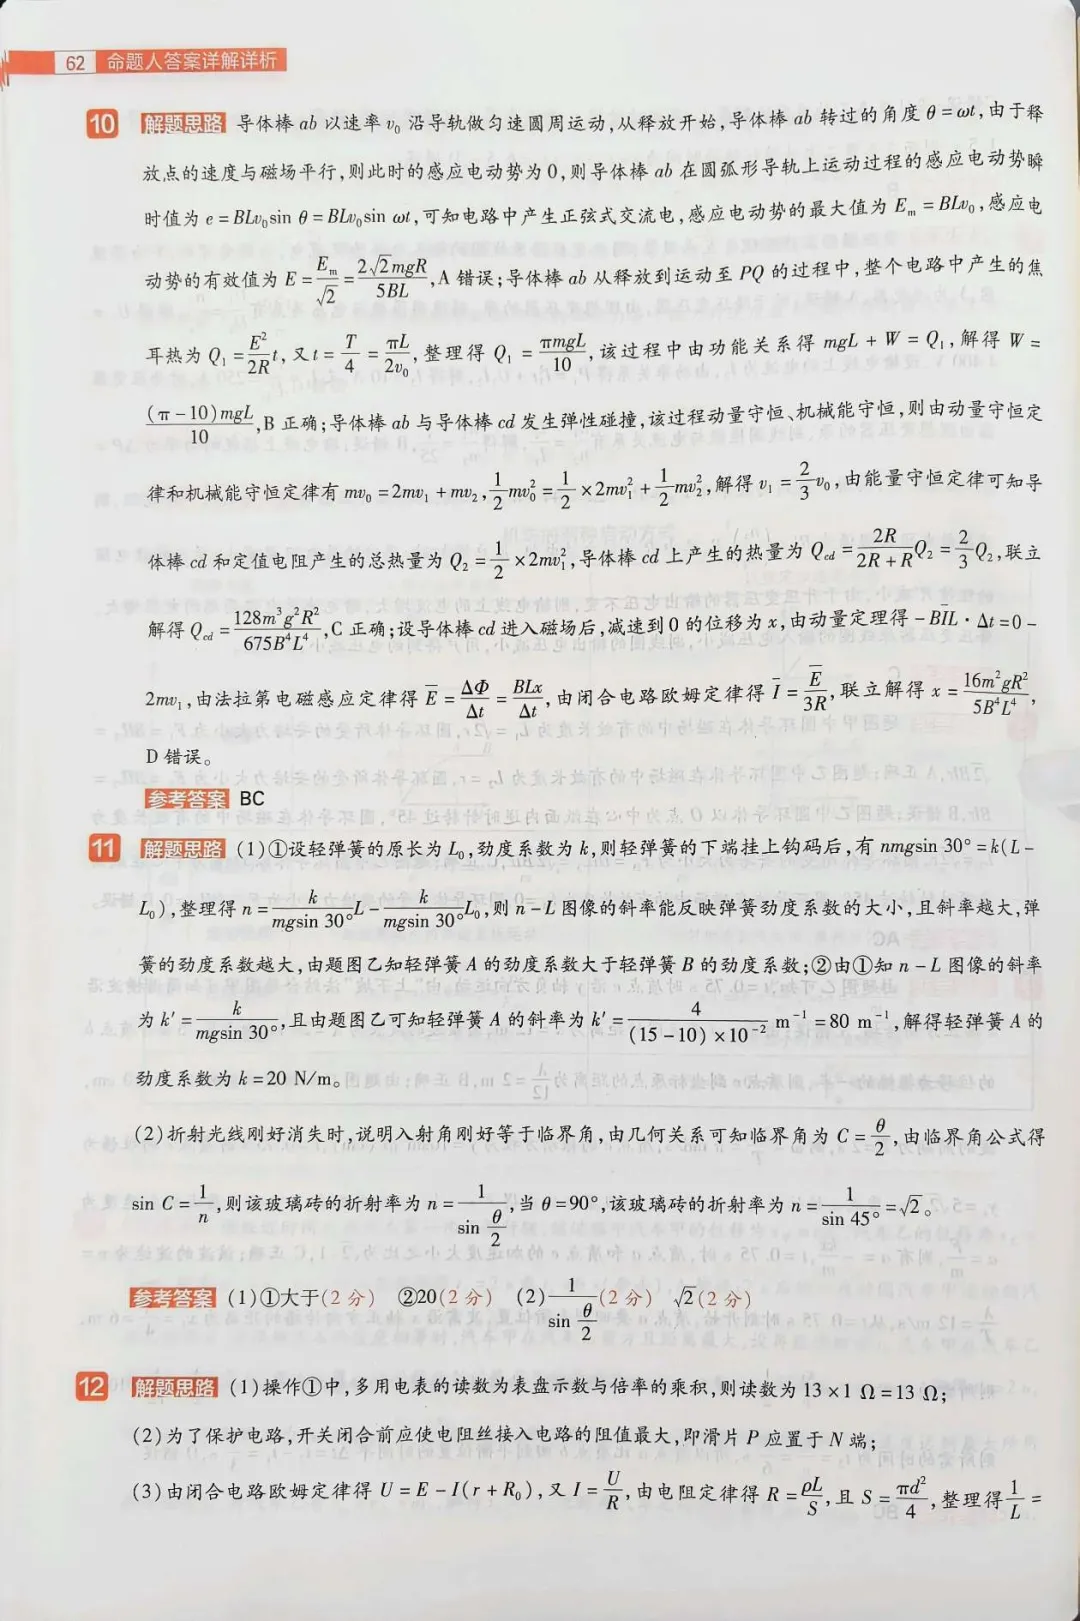 62 命题人答案详解详析
10 解题思路 导体棒 ab 以速率 v₀ 沿导轨做匀速圆周运动,从释放开始,导体棒 ab 转过的角度 θ=ωt,由于释
放点的速度与磁场平行,则此时的感应电动势为0,则导体棒 ab 在圆弧形导轨上运动过程的感应电动势瞬
时值为 e=BLv₀sin θ=BLv₀sin ωt,可知电路中产生正弦式交流电,感应电动势的最大值为 Eₘ=BLv₀,感应电
动势的有效值为 E=Eₘ/√2=2√2mgR/5BL,A 错误;导体棒 ab 从释放到运动至 PQ 的过程中,整个电路中产生的焦
耳热为 Q₁=E²/2R t,又 t=T/4=πL/2v₀,整理得 Q₁=πmgL/10,该过程中由功能关系得 mgL+W=Q₁,解得 W=
(π-10)mgL/10,B 正确;导体棒 ab 与导体棒 cd 发生弹性碰撞,该过程动量守恒、机械能守恒,则由动量守恒定
律和机械能守恒定律有 mv₀=2mv₁+mv₂,1/2 mv₀²=1/2×2mv₁²+1/2 mv₂²,解得 v₁=2/3 v₀,由能量守恒定律可知导
体棒 cd 和定值电阻产生的总热量为 Q₂=1/2×2mv₁²,导体棒 cd 上产生的热量为 Q_cd=2R/(2R+R) Q₂=2/3 Q₂,联立
解得 Q_cd=128m³g²R²/675B⁴L⁴,C 正确;设导体棒 cd 进入磁场后,减速到0的位移为 x,由动量定理得 -BI̅L·Δt=0-
2mv₁,由法拉第电磁感应定律得 E̅=ΔΦ/Δt=BLx/Δt,由闭合电路欧姆定律得 I̅=E̅/3R,联立解得 x=16m²gR²/5B⁴L⁴,
D 错误。
参考答案 BC
11 解题思路 (1)①设轻弹簧的原长为 L₀,劲度系数为 k,则轻弹簧的下端挂上钩码后,有 nmgsin 30°=k(L-
L₀),整理得 n=k/(mgsin 30°) L-k/(mgsin 30°) L₀,则 n-L 图像的斜率能反映弹簧劲度系数的大小,且斜率越大,弹
簧的劲度系数越大,由题图乙知轻弹簧 A 的劲度系数大于轻弹簧 B 的劲度系数;②由①知 n-L 图像的斜率
为 k′=k/(mgsin 30°),且由题图乙可知轻弹簧 A 的斜率为 k′=4/((15-10)×10⁻²) m⁻¹=80 m⁻¹,解得轻弹簧 A 的
劲度系数为 k=20 N/m。
(2)折射光线刚好消失时,说明入射角刚好等于临界角,由几何关系可知临界角为 C=θ/2,由临界角公式得
sin C=1/n,则该玻璃砖的折射率为 n=1/(sin θ/2),当 θ=90°,该玻璃砖的折射率为 n=1/(sin 45°)=√2。
参考答案 (1)①大于(2分) ②20(2分) (2)1/(sin θ/2)(2分) √2(2分)
12 解题思路 (1)操作①中,多用电表的读数为表盘示数与倍率的乘积,则读数为 13×1 Ω=13 Ω;
(2)为了保护电路,开关闭合前应使电阻丝接入电路的阻值最大,即滑片 P 应置于 N 端;
(3)由闭合电路欧姆定律得 U=E-I(r+R₀),又 I=U/R,由电阻定律得 R=ρL/S,且 S=πd²/4,整理得 1/L=